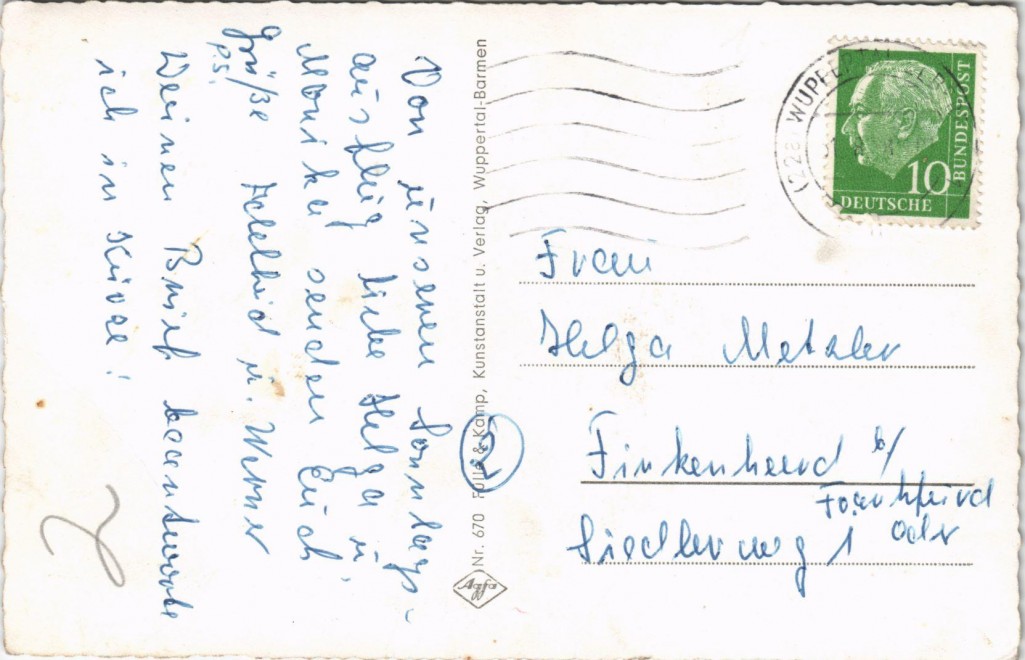 Von unseren Sonntags-
ausflug liebe Helga u.
Monika senden Euch
Grüße Adelheid u. Werner
P.S.
Deinen Brief beantworte
ich in Kürze!
Nr. 670 Folle & Kamp, Kunstanstalt u. Verlag, Wuppertal-Barmen
Agfa
WUPPERTAL
10
DEUTSCHE
BUNDESPOST
Frau
Helga Metzler
Finkenheerd b/
Frankfurt
Oder
Siedlerweg 1